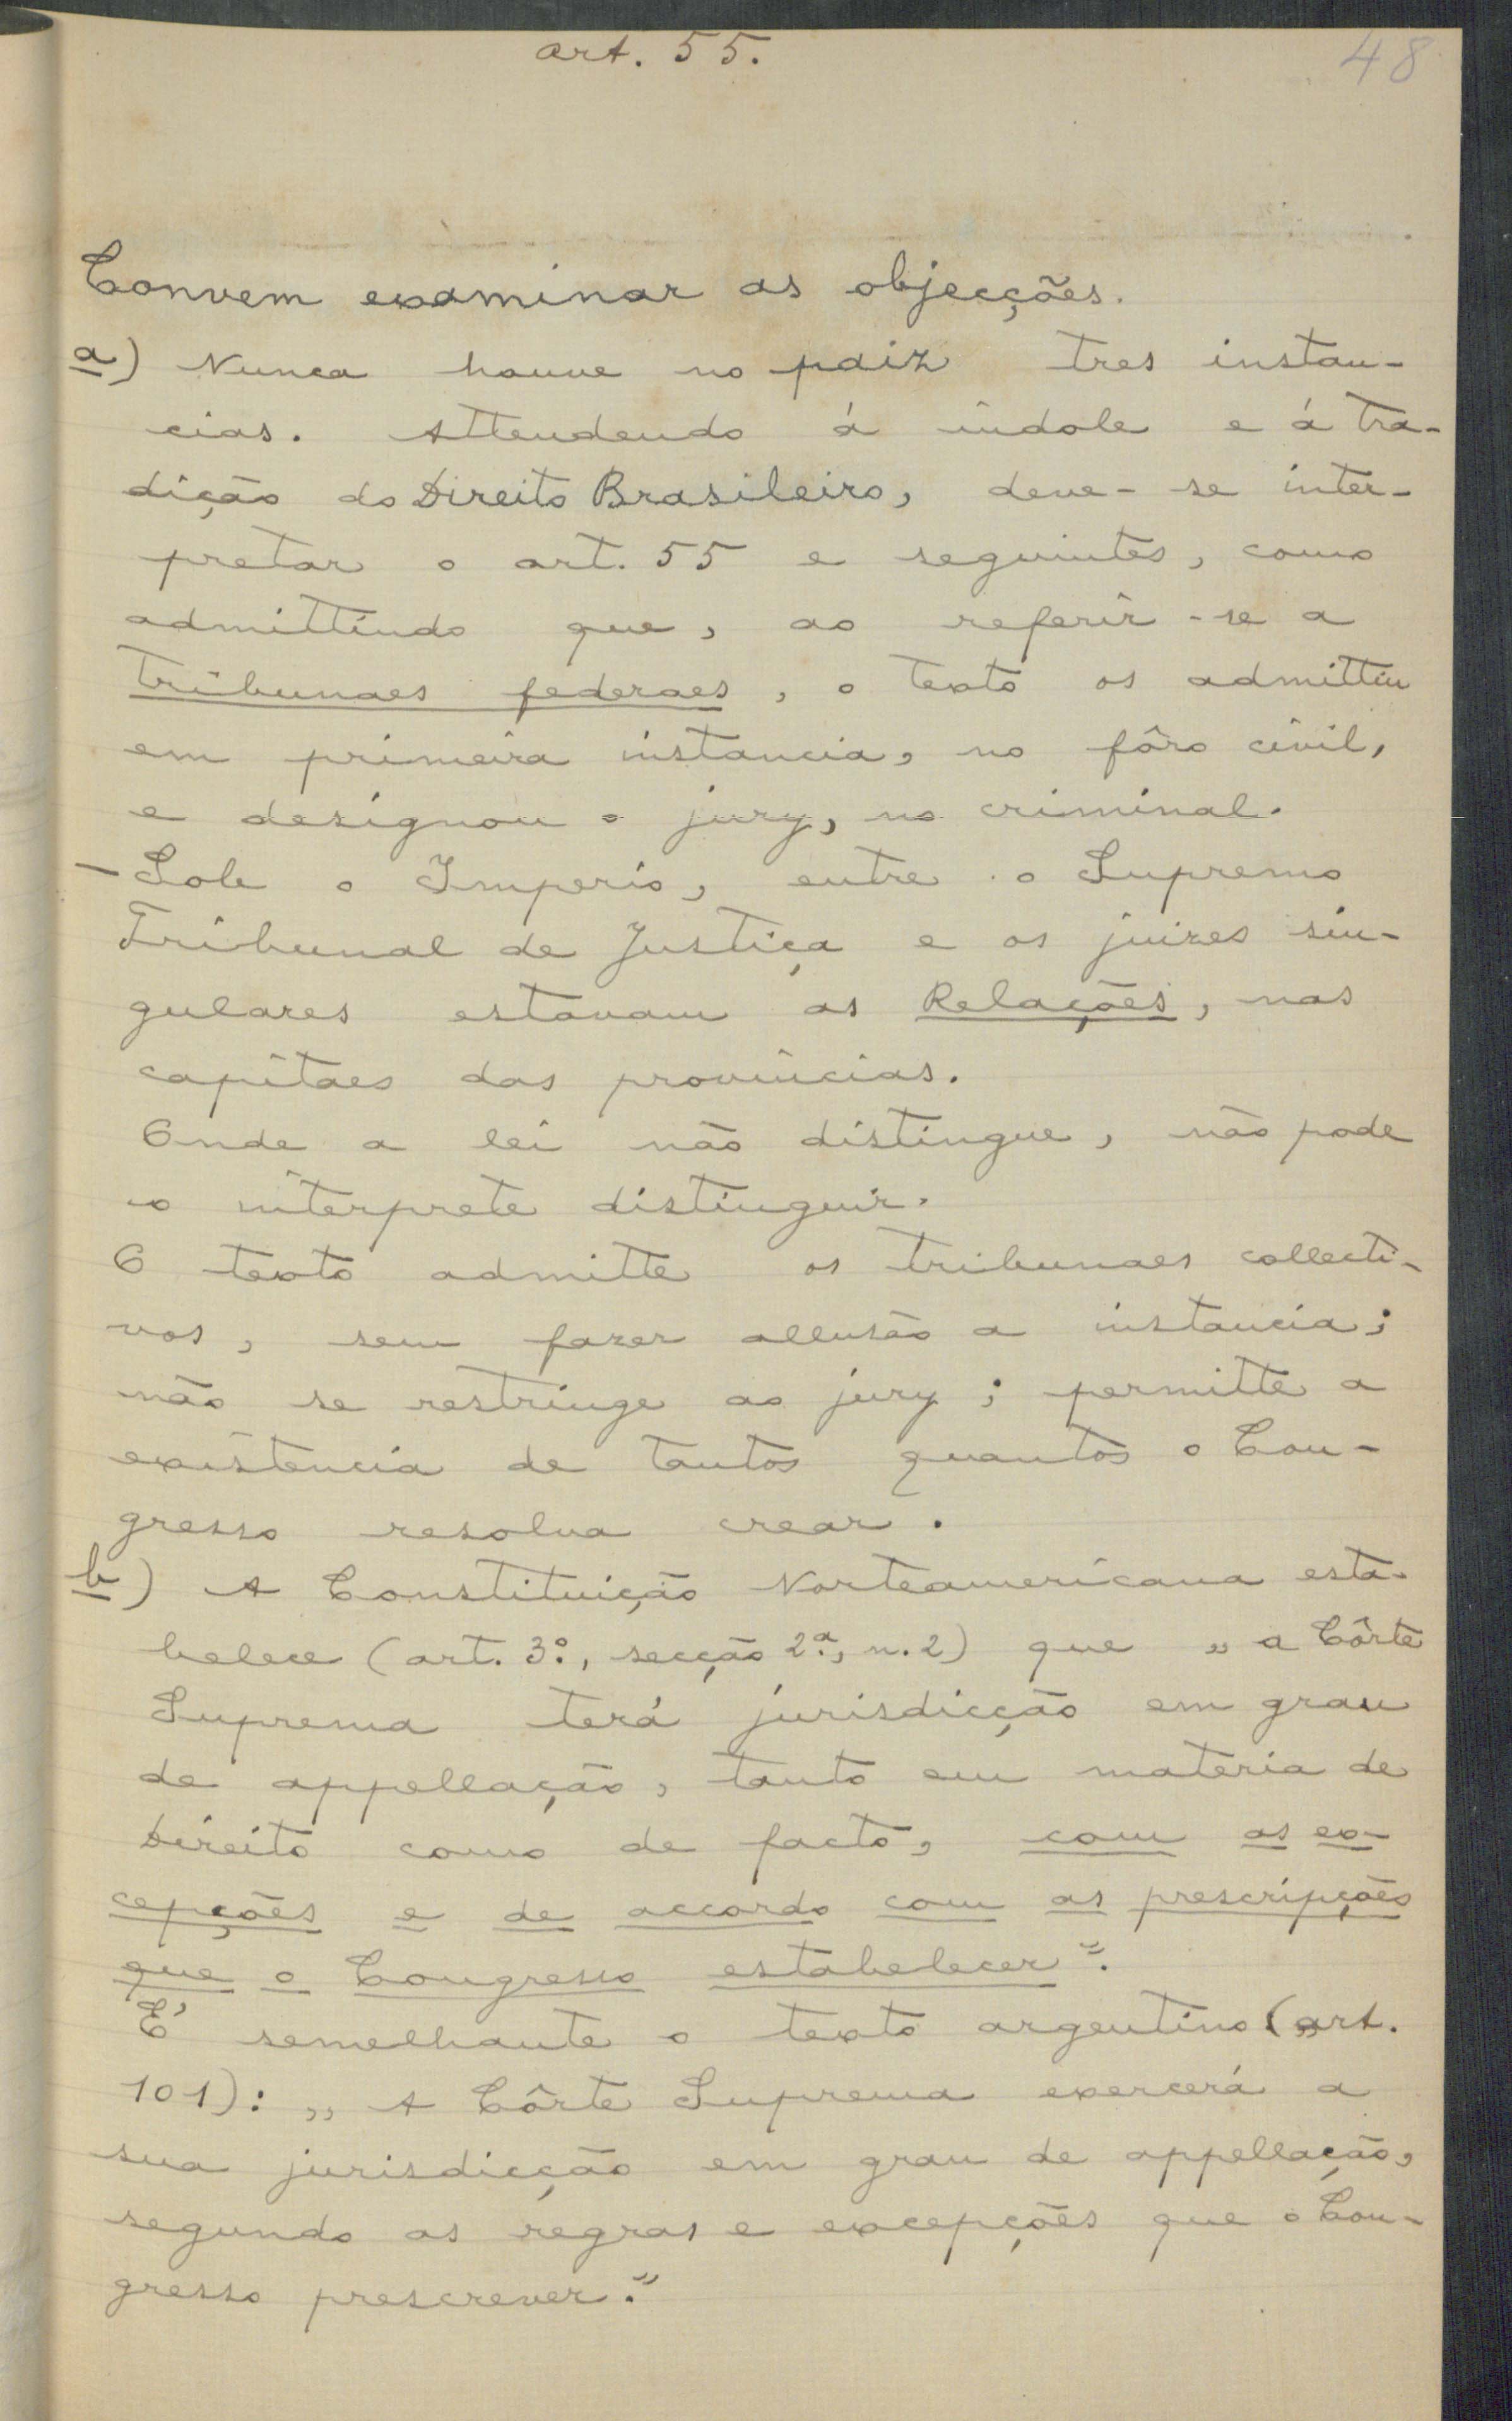 art. 55.
48
Convem examinar as objecções.
a) Nunca houve no paiz tres instan-
cias. Attendendo á indole e á tra-
dição do Direito Brasileiro, deve-se inter-
pretar o art. 55 e seguintes, como
admittindo que, ao referir-se a
tribunaes federaes, o texto os admittiu
em primeira instancia, no fôro civil,
e designou o jury, no criminal.
- Sob o Imperio, entre o Supremo
Tribunal de Justiça e os juizes sin-
gulares estavam as Relações, nas
capitaes das provincias.
Onde a lei não distingue, não pode
o interprete distinguir.
O texto admitte os tribunaes collecti-
vos, sem fazer allusão a instancia;
não se restringe ao jury; permitte a
existencia de tantos quantos o Con-
gresso resolva crear.
b) A Constituição Norteamericana esta-
belece (art. 3º, secção 2ª, n. 2) que „a Côrte
Suprema terá jurisdicção em grau
de appellação, tanto em materia de
Direito como de facto, com as ex-
cepções e de accordo com as prescripções
que o Congresso estabelecer".
É semelhante o texto argentino (art.
101): „A Côrte Suprema exercerá a
sua jurisdicção em grau de appellação,
segundo as regras e excepções que o Con-
gresso prescrever."